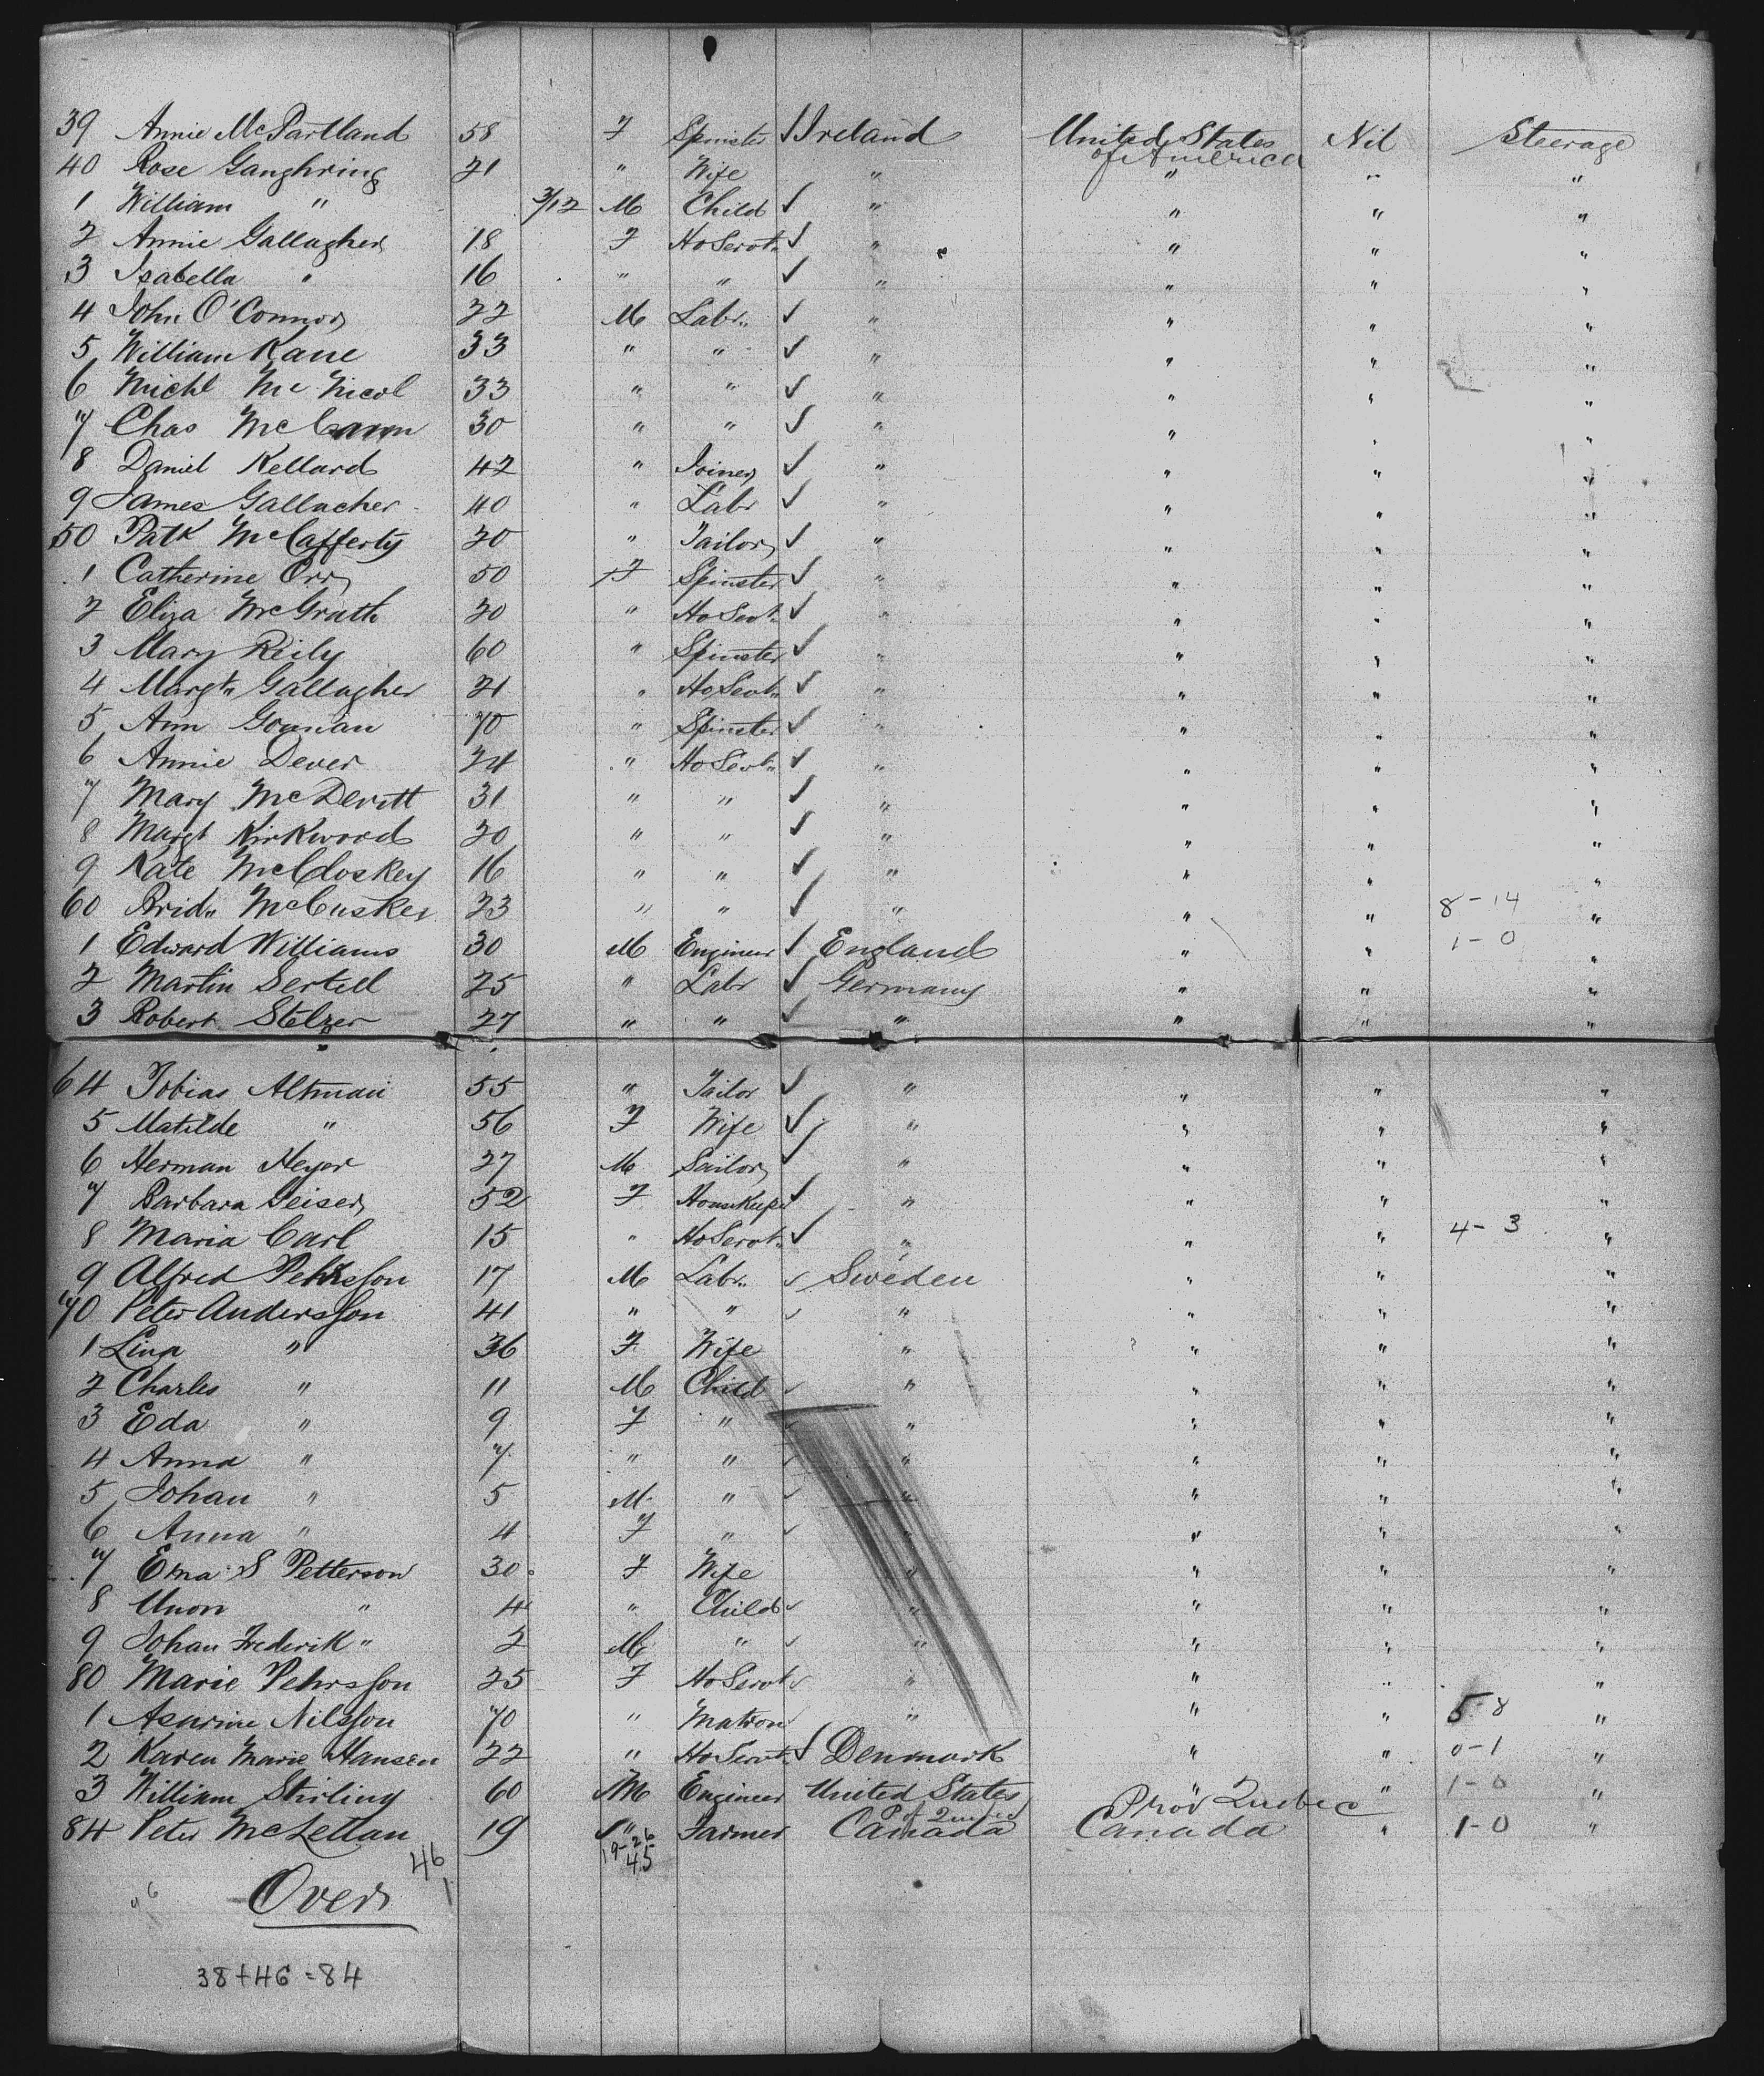 39 Annie McPartland 58 F Spinster ✓ Ireland United States of America Nil Steerage
40 Rose Gaughring 21 " Wife " " " "
1 William " 3/12 M Child ✓ " " " "
2 Annie Gallagher 18 F Ho Servt. ✓ " " " "
3 Isabella " 16 " " ✓ " " " "
4 John O'Connor 22 M Labr. ✓ " " " "
5 William Kane 33 " " ✓ " " " "
6 Michl McNicol 33 " " ✓ " " " "
7 Chas McCann 30 " " ✓ " " " "
8 Daniel Kellard 42 " Joiner ✓ " " " "
9 James Gallacher 40 " Labr ✓ " " " "
50 Patk McCafferty 20 " Tailor ✓ " " " "
1 Catherine Orr 50 F Spinster ✓ " " " "
2 Eliza McGrath 20 " Ho Servt. ✓ " " " "
3 Mary Reily 60 " Spinster ✓ " " " "
4 Margt. Gallagher 21 " Ho Servt. ✓ " " " "
5 Ann 70 " Spinster ✓ " " " "
6 Annie Dever 24 " Ho Servt. ✓ " " " "
7 Mary McDevitt 31 " " ✓ " " " "
8 Margt Kirkwood 20 " " ✓ " " " "
9 Kate McCloskey 16 " " ✓ " " " "
60 Brid. McCusker 23 " " ✓ " " " 8-14 "
1 Edward Williams 30 M Engineer ✓ England " " 1-0 "
2 Martin Sertell 25 " Labr ✓ Germany " " "
3 Robert Stelzer 27 " " ✓ " " " "
64 Tobias Altman 55 " Tailor ✓ " " " "
5 Matilde " 56 F Wife ✓ " " " "
6 Herman Heyer 27 M Sailor ✓ " " " "
7 Barbara Geiser 52 F Housekeeper ✓ " " " "
8 Maria Carl 15 " Ho Servt. ✓ " " " 4-3 "
9 Alfred Pehrsson 17 M Labr. ✓ Sweden " " "
70 Peter Andersson 41 " " ✓ " " " "
1 Lina " 36 F Wife " " " "
2 Charles " 11 M Child ✓ " " " "
3 Eda " 9 F " ✓ " " " "
4 Anna " 7 " " ✓ " " " "
5 Johan " 5 M " ✓ " " " "
6 Anna " 4 F " ✓ " " " "
7 Ema S Petterson 30 F Wife " " " "
8 " 4 " Child ✓ " " " "
9 Johan Frederik " 2 M " ✓ " " " "
80 Marie Pehrsson 25 F Ho Servt ✓ " " " "
1 Nilsson 70 " Matron " " " 5-8 "
2 Karen Marie Hansen 22 " Ho Servt. ✓ Denmark " " 0-1 "
3 William Stirling 60 M Engineer United States " " 1-0 "
84 Peter McLellan 19 " Farmer P of Quebec Canada Prov Quebec Canada " 1-0 "
46 19-26
1 45
Over
38+46=84